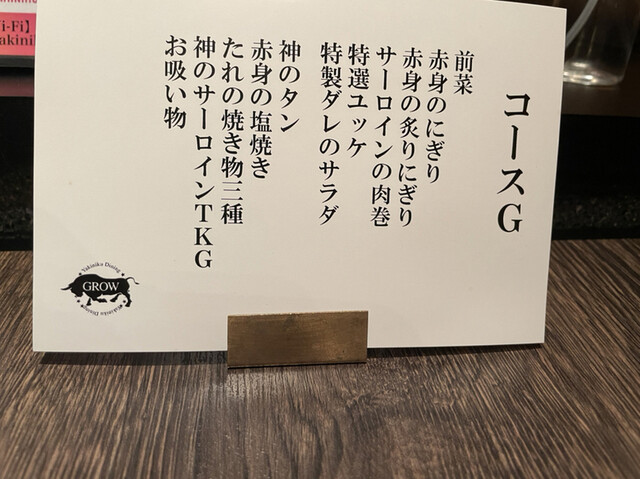 コースG
前菜
赤身のにぎり
赤身の炙りにぎり
サーロインの肉巻
特選ユッケ
特製ダレのサラダ
神のタン
赤身の塩焼き
たれの焼き物三種
神のサーロインTKG
お吸い物
Yakiniku Dining
GROW
Yakiniku Dining
i-Fi】
akinik